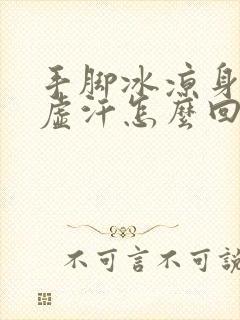 手脚冰凉身
虚汗怎麼回
不可言不可說